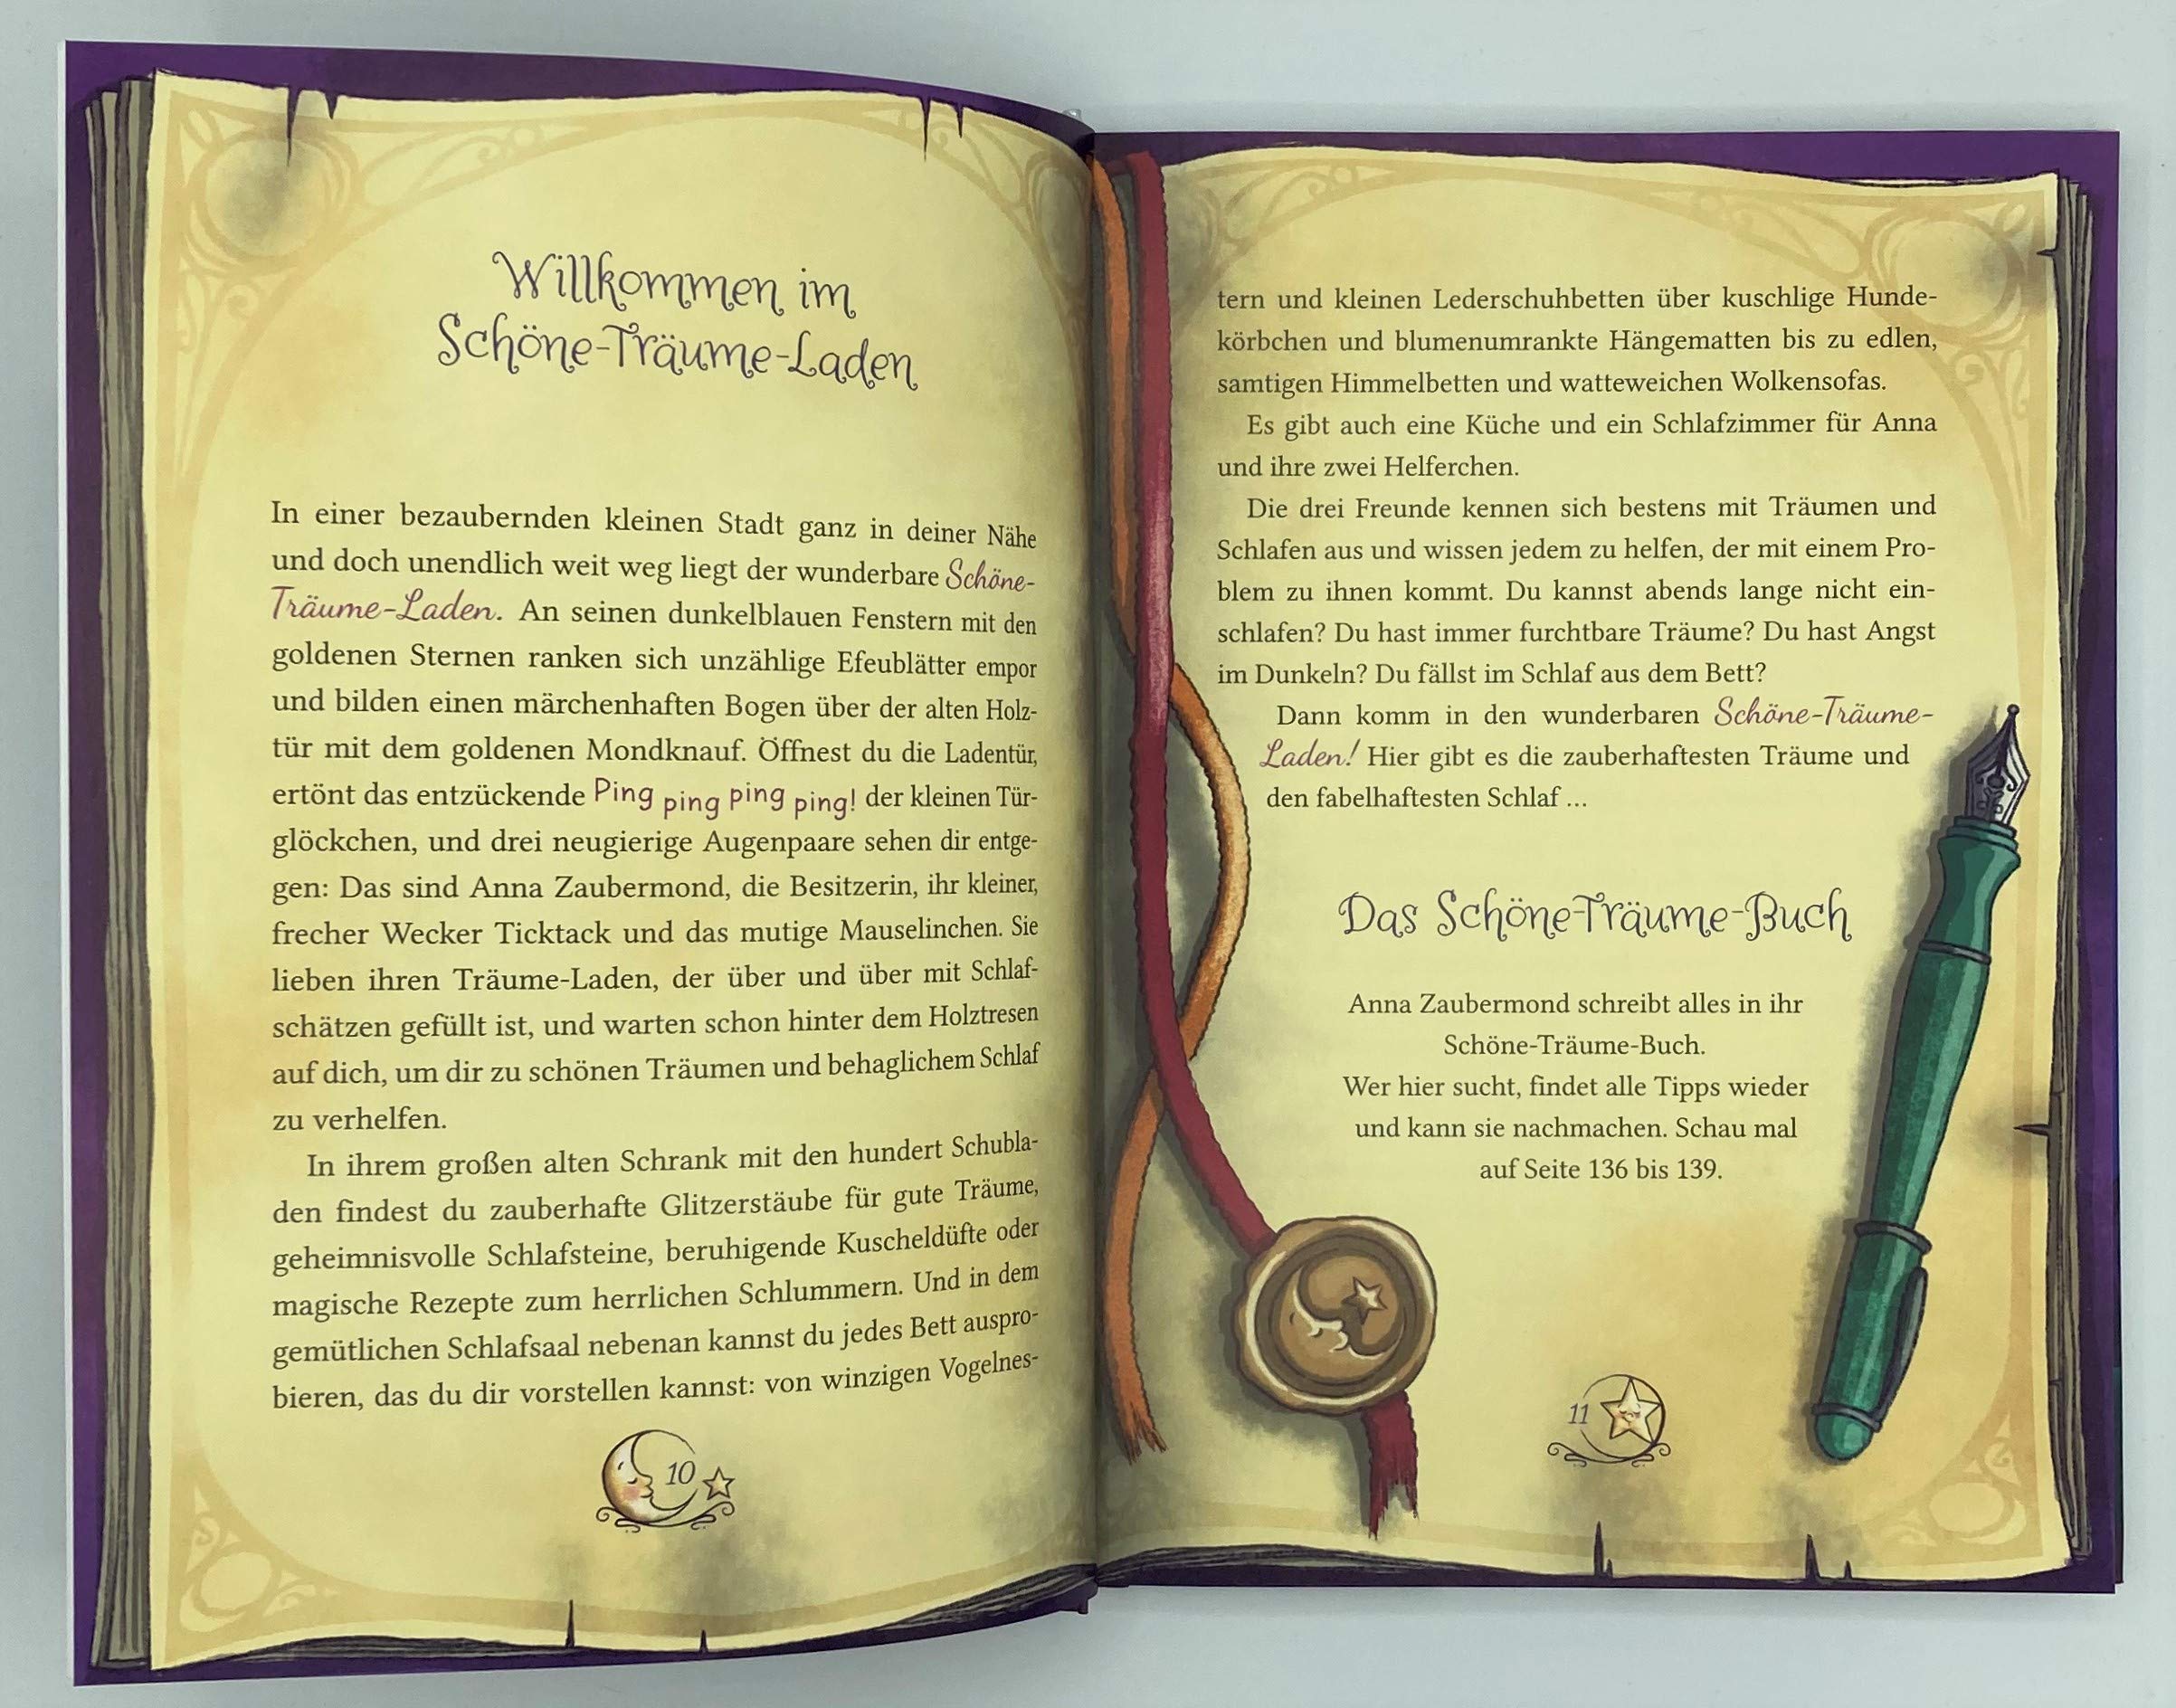 Willkommen im
Schöne-Träume-Laden
In einer bezaubernden kleinen Stadt ganz in deiner Nähe
und doch unendlich weit weg liegt der wunderbare Schöne-
Träume-Laden. An seinen dunkelblauen Fenstern mit den
goldenen Sternen ranken sich unzählige Efeublätter empor
und bilden einen märchenhaften Bogen über der alten Holz-
tür mit dem goldenen Mondknauf. Öffnest du die Ladentür,
ertönt das entzückende Ping ping ping ping! der kleinen Tür-
glöckchen, und drei neugierige Augenpaare sehen dir entge-
gen: Das sind Anna Zaubermond, die Besitzerin, ihr kleiner,
frecher Wecker Ticktack und das mutige Mauselinchen. Sie
lieben ihren Träume-Laden, der über und über mit Schlaf-
schätzen gefüllt ist, und warten schon hinter dem Holztresen
auf dich, um dir zu schönen Träumen und behaglichem Schlaf
zu verhelfen.
In ihrem großen alten Schrank mit den hundert Schubla-
den findest du zauberhafte Glitzerstäube für gute Träume,
geheimnisvolle Schlafsteine, beruhigende Kuscheldüfte oder
magische Rezepte zum herrlichen Schlummern. Und in dem
gemütlichen Schlafsaal nebenan kannst du jedes Bett auspro-
bieren, das du dir vorstellen kannst: von winzigen Vogelnes-
10
tern und kleinen Lederschuhbetten über kuschlige Hunde-
körbchen und blumenumrankte Hängematten bis zu edlen,
samtigen Himmelbetten und watteweichen Wolkensofas.
Es gibt auch eine Küche und ein Schlafzimmer für Anna
und ihre zwei Helferchen.
Die drei Freunde kennen sich bestens mit Träumen und
Schlafen aus und wissen jedem zu helfen, der mit einem Pro-
blem zu ihnen kommt. Du kannst abends lange nicht ein-
schlafen? Du hast immer furchtbare Träume? Du hast Angst
im Dunkeln? Du fällst im Schlaf aus dem Bett?
Dann komm in den wunderbaren Schöne-Träume-
Laden! Hier gibt es die zauberhaftesten Träume und
den fabelhaftesten Schlaf ...
Das Schöne-Träume-Buch
Anna Zaubermond schreibt alles in ihr
Schöne-Träume-Buch.
Wer hier sucht, findet alle Tipps wieder
und kann sie nachmachen. Schau mal
auf Seite 136 bis 139.
11